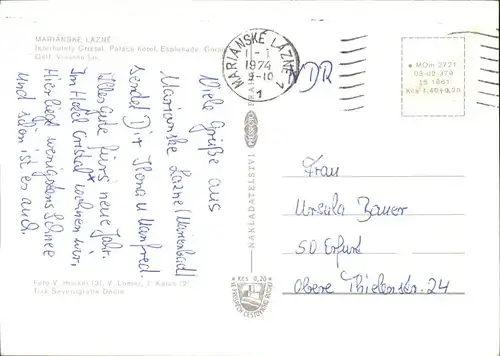 MARIÁNSKÉ LÁZNĚ
Interhotely Cristal, Palace hotel, Esplanade,
Viele Grüße aus
Marianske Lazne/Marienbad
sendet Dir Ilona u. Manfred.
Alles gute fürs neue Jahr.
Im Hotel Cristal* wohnen wir.
Hier liegt wenigstens Schnee
und schön ist es auch.
Foto V. Heckel (3), V. Lomoz,
Tisk Severografie Děčín
NAKLADATELSTVÍ
Kčs. 0,20
MARIÁNSKÉ LÁZNĚ 1
1974
9-10
1
DDR
MOm 2721
03-02 379
15 1861
Kčs 1,40+0,20
Frau
Ursula Bauer
50 Erfurt
Obere Thielenstr. 24